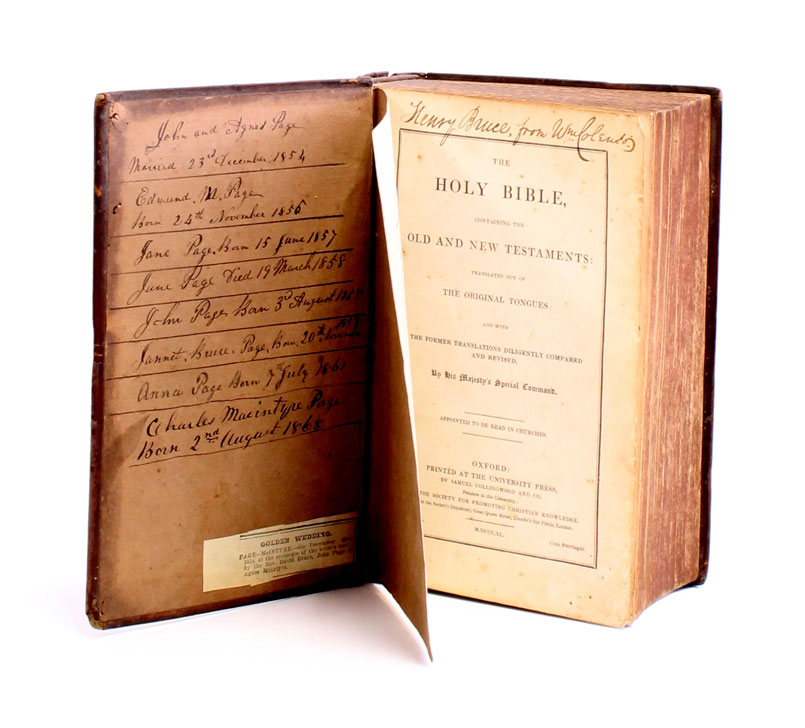 John and Agnes Page
Married 23rd December 1854
Edmund. M. Page
Born 24th November 1855
Jane Page, Born 15 June 1857
Jane Page Died 19 March 1858
John Page Born 3rd August
Jannet. Bruce. Page, Born, 20th November
Anna Page Born 7th July
Charles Macintyre Page
Born 2nd August 1868
GOLDEN WEDDING.
PAGE—McINTYRE.—On December
1854 at the residence of the bride's
by the Rev. David Bruce, John Page to
Agnes McIntyre.
Henry Bruce, from Wm Colenso
THE
HOLY BIBLE,
CONTAINING THE
OLD AND NEW TESTAMENTS:
TRANSLATED OUT OF
THE ORIGINAL TONGUES:
AND WITH
THE FORMER TRANSLATIONS DILIGENTLY COMPARED
AND REVISED,
By His Majesty's Special Command.
APPOINTED TO BE READ IN CHURCHES.
OXFORD:
PRINTED AT THE UNIVERSITY PRESS,
BY SAMUEL COLLINGWOOD AND CO.
Printers to the University;
THE SOCIETY FOR PROMOTING CHRISTIAN KNOWLEDGE,
at the Society's Depository, Great Queen Street, Lincoln's Inn Fields, London.
M.DCCC.XL.
Cum Privilegio.